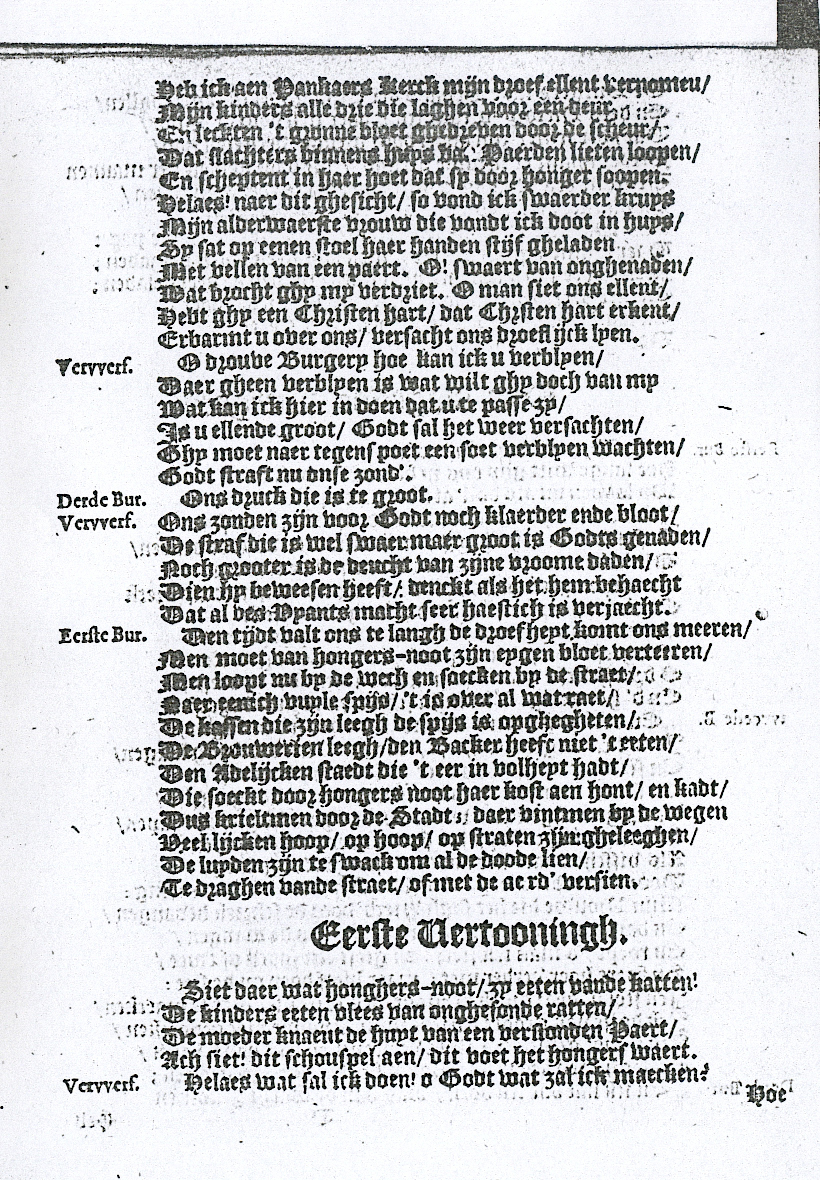 Heb ick aen Pankaers Kerck mijn droef ellent vernomen/
Mijn kinders alle drie die laghen voor een deur
En leckten 't gronne bloet ghedreven door de scheur/
Dat slachters binnens huys va. Paerden lieten loopen/
En scheptent in haer hoet dat sy door honger soopen.
Helaes! naer dit ghesicht/ so vond ick swaerder kruys
Mijn alderwaerste vrouw die vondt ick doot in huys/
Sy sat op eenen stoel haer handen stijf gheladen
Met vellen van een paert. O! swaert van onghenaden/
Wat brocht ghy my verdriet. O man siet ons ellent/
Hebt ghy een Christen hart/ dat Chrsten hart erkent/
Erbarmt u over ons/ versacht ons droeflijck lyen.
Vervverf. O drouve Burgery hoe kan ick u verblyen/
Daer gheen verblyen is wat wilt ghy doch van my
Wat kan ick hier in doen dat u te passe zy/
Is u ellende groot/ Godt sal het weer versachten/
Ghy moet naer tegenspoet een soet verblyen wachten/
Godt straft nu onse zond'.
Derde Bur. Ons druck die is te groot.
Vervverf. Ons zonden zijn voor Godt noch klaerder ende bloot/
De straf die is wel swaer maer groot is Godts genaden/
Noch grooter is de deucht van zijne vroome daden/
Dien hy beweesen heeft/ denckt als het hem behaecht
Dat al des Vyants macht seer haestich is verjaecht.
Eerste Bur. Den tijdt valt ons te langh de droefheyt komt ons meeren/
Men moet van hongers-noot zijn eygen bloet verteeren/
Men loopt nu by de wech en soecken by de straet/
Naer eenich vuyle spijs/ 't is over al wat raet/
De kassen die zijn leegh de spijs is opghegheten/
De Brouwerien leegh/ den Backer heeft niet 't eeten/
Den Adelijcken staedt die 't eer in volheyt hadt/
Die soeckt door hongers noot haer kost aen hont/ en kadt/
Dus krieltmen door de Stadt: daer vintmen by de wegen
Veel lijcken hoop/ op hoop/ op straten zijn gheleeghen/
De luyden zijn te swack om al de doode lien/
Te draghen vande straet/ of met de aerd' versien.
Eerste Vertooningh.
Siet daer wat honghers-noot/ zy eeten vande katten!
De kinders eeten vlees van onghesonde ratten/
De moeder knaeut de huyt van een verslonden Paert/
Ach siet! dit schouspel aen/ dit voet het hongers waert.
Vervverf. Helaes wat sal ick doen! o Godt wat zal ick maecken?
Hoe